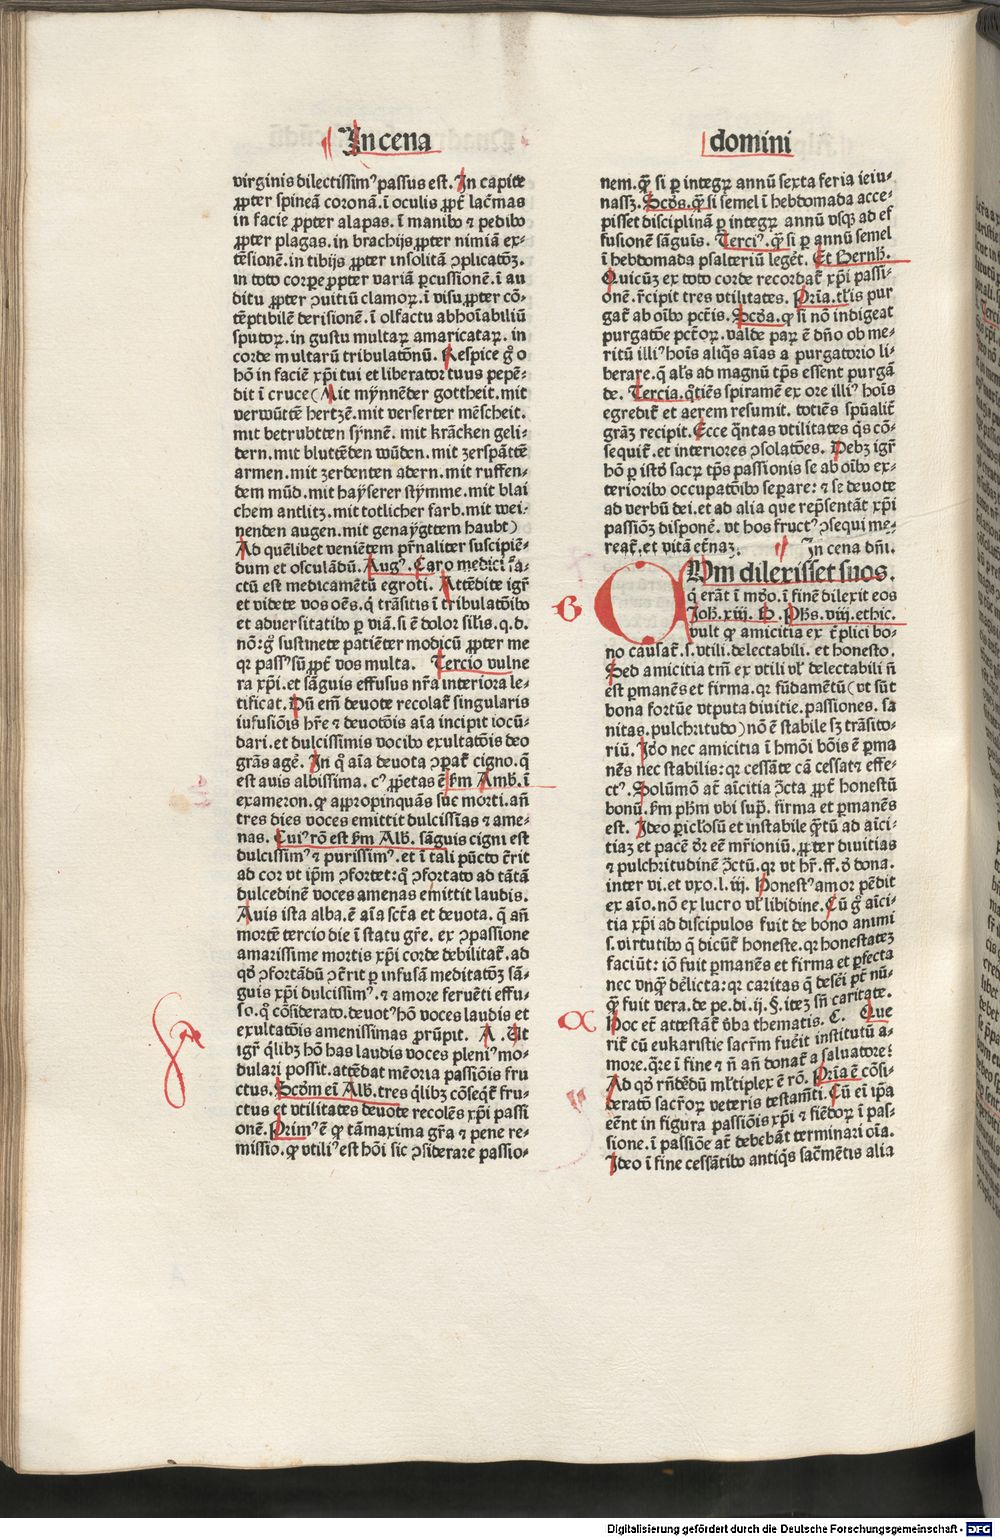 In cena
domini
virginis dilectissimꝰ passus est. In capite
ꝓpter spineā coronā. ī oculis ꝓpt̄ lac̄mas
in facie ꝓpter alapas. ī manibꝰ ⁊ pedibꝰ
ꝓpter plagas. in brachijs ꝓpter nimiā ex⸗
tēsionē. in tibijs ꝓpter insolitā ꝯplicatōꝫ.
in toto corꝑe ꝓpter variā ꝑcussionē. ī au
ditu ꝓpter ꝯuitiū clamoꝝ. ī visu ꝓpter cō⸗
tēptibilē derisionē. ī olfactu abhoīabiliū
sputoꝝ. in gustu multaꝝ amaricataꝝ. in
corde multarū tribulatōnū. Respice gͦ o
hō in faciē xp̄i tui et liberator tuus pepē⸗
dit ī cruce (Mit mẏnnēder gottheit. mit
verwūttē hertzē. mit verserter mēscheit.
mit betrubtten sẏnnē. mit krācken geli⸗
dern. mit bluttēden wūden. mit zerspāttē
armen. mit zerdenten adern. mit ruffen⸗
dem mūd. mit haẏserer stẏmme. mit blai
chem antlitz. mit totlicher farb. mit wei⸗
nenden augen. mit genaẏgttem haubt)
Ad quēlibet veniētem ꝑr̄naliter suscipiē⸗
dum et osculādū. Augꝰ. Caro medici īfra
ctū est medicamētū egroti. Attēdite igr̄
et videte vos oēs. q̇ trāsitis ī tribulatōibꝰ
et aduersitatibꝰ ꝑ viā. si ē dolor sil̄is. q. d.
nō: gͦ sustinete patiēter modicū ꝓpter me
qꝛ passꝰ sū ꝓpt̄ vos multa. Tercio vulne
ra xp̄i. et sāguis effusus nr̄a interiora le⸗
tificat. Dū em̄ deuote recolat̄ singularis
iufusiōis hr̄e ⁊ deuotōis aīa incipit iocū⸗
dari. et dulcissimis vocibꝰ exultatōis deo
grās agē. In q̇ aīa deuota ꝯꝑat̄ cigno. q̇
est auis albissima. cꝰ ꝓprietas ē ẜm Amb. ī
exameron. qꝙ appropinquās sue morti. an̄
tres dies voces emittit dulcissīas ⁊ ame⸗
nas. Cuiꝰ rō est ẜm Alb. sāguis cigni est
dulcissimꝰ ⁊ purissimꝰ. et ī tali pūcto ē̄rit
ad cor vt ip̄m ꝯfortet: q̇ ꝯfortato ad tātā
dulcedinē voces amenas emittit laudis.
Auis ista alba. ē aīa sc̄ta et deuota. q̇ an̄
mortē tercio die ī statu gr̄e. ex ꝯpassione
amarissime mortis xp̄i corde debilitat̄. ad
qd̓ ꝯfortādū ꝯē̄rit ꝑ infusā meditatōꝫ sā⸗
guis xp̄i dulcissimꝰ. ⁊ amore feruēti effu⸗
so. q̇ cōsiderato. deuotꝰ hō voces laudis et
exultatōis amenissimas prūpit. A. Ut
igr̄ q̄libꝫ hō has laudis voces pleniꝰ mo⸗
dulari possit. attēdat mēoria passiōis fru
ctus. Scd̓m eī Alb. tres q̄libꝫ cōseq̄t̄ fru⸗
ctus et vtilitates deuote recolēs xp̄i passi
onē. Primꝰ ē qꝙ tāmaxima gr̄a ⁊ pene re⸗
missio. qꝙ vtiliꝰ est hōi sic ꝯsiderare passio⸗
nem. q̄ꝫ si ꝑ integꝝ annū sexta feria ieiu⸗
nassꝫ. Scd̓s. q̄ꝫ si semel ī hebdomada acce⸗
pisset disciplinā ꝑ integꝝ annū vsqꝫ ad ef
fusionē sāguis. Terciꝰ. q̄ꝫ si ꝑ annū semel
ī hebdomada psalteriū legēt. Et Bernh̄.
Quicūqꝫ ex toto corde recordat̄ xp̄i passi⸗
onē. r̄cipit tres vtilitates. Pria. tl̄is pur
gat̄ ab oībꝰ pctīs. Scd̓a. qꝙ si nō indigeat
purgatōe pctōꝝ. valde paꝝ ē dn̄o ob me⸗
ritū illiꝰ hoīs aliq̄s aīas a purgatorio li⸗
berare. q̄ al̄s ad magnū tp̄s essent purgā
de. Tercia. q̄tiēs spiramē ex ore illiꝰ hoīs
egredit̄ et aerem resumit. totiēs spūalit̄
grāꝫ recipit. Ecce q̄ntas vtilitates q̄s cō⸗
sequit̄. et interiores ꝯsolatōes. Debꝫ igr̄
hō ꝑ istoꝝ sacꝝ tp̄s passionis se ab oībꝰ ex⸗
terioribꝰ occupatōibꝰ seꝑare: ⁊ se deuote
ad verbū dei. et ad alia que rep̄sentāt xp̄i
passiōꝫ disponē. vt hos fructꝰ ꝯsequi me⸗
reat̄. et vitā et̄naꝫ. In cena dn̄i.
CUm dilexisset suos.
q̇ erāt ī mūdo. ī finē dilexit eos
Joh̄. xiij. P. Ph̄s. viij. ethic.
vult qꝙ amicitia ex t̄plici bo⸗
no causat̄. s. vtili. delectabili. et honesto.
Sed amicitia tm̄ ex vtili vl̓ delectabili n̄
est ꝑmanēs et firma. qꝛ fūdamētū (vt sūt
bona fortūe vtputa diuitie. passiones. sa
nitas. pulchritudo) nō ē stabile sꝫ trāsito⸗
riū. Ido nec amicitia ī hmōi bōis ē ꝑma
nēs nec stabilis: qꝛ cessāte cā cessat⁊ effe⸗
ctꝰ. Solūmō at̄ aīcitia ꝯcta ꝓpt̄ honestū
bonū. ẜm ph̄m vbi sup̄. firma et ꝑmanēs
est. Ideo ꝑiclosū et instabile q̄tū ad aīci⸗
tiaꝫ et pacē d̓r eē mr̄ioniū. ꝓpter diuitias
⁊ pulchritudinē ꝯctū. qꝛ vt hr̄. ff. d̓ dona.
inter vi. et vxo. l. iij. Honestꝰ amor pēdit
ex aīo. nō ex lucro vl̓ libidine. Cū gͦ aīci⸗
tia xp̄i ad discipulos fuit de bono animi
s. virtutibꝰ q̄ dicūt̄ honeste. qꝛ honestateꝫ
faciūt: iō fuit ꝑmanēs et firma et ꝑfecta
nec vnq̄ꝫ dēlicta: qꝛ caritas q̄ desēi pt̄ nū⸗
q̄ꝫ fuit vera. de pe. di. ij. §. iteꝫ sn̄ caritate.
Hoc et̄ attestāt̄ v̓ba thematis. C. Que
rit̄ cū eukaristie sacr̄m fueīt institutū a⸗
more. q̄re ī fine ⁊ n̄ an̄ donat̄ a saluatore?
Ad qd̓ rn̄dēdū ml̄tiplex ē rō. Pria ē cōsi⸗
derato sacr̄oꝝ veteris testam̄ti. Cū eī ip̄a
eēnt in figura passiōis xp̄i ⁊ fiēdoꝝ ī pas⸗
sione. ī passiōe at̄ debebāt terminari oīa.
Ideo ī fine cessātibꝰ antiq̄s sac̄mētis alia
Digitalisierung gefördert durch die Deutsche Forschungsgemeinschaft - DFG